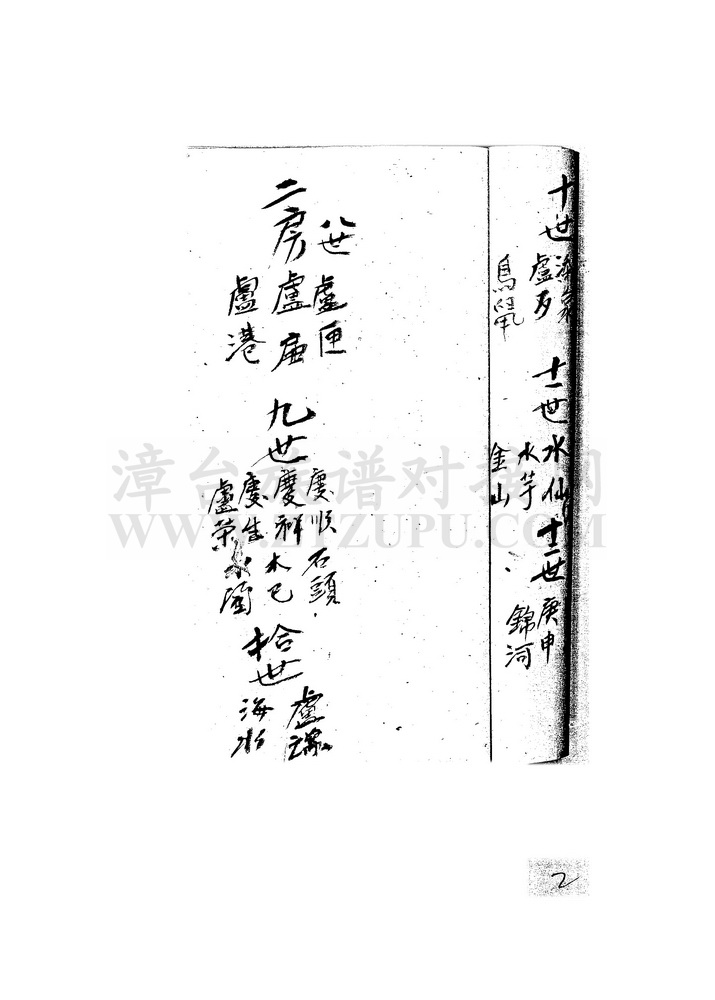 十世
盧
烏
十一世
水仙
水芋
金山
十二世
庚申
錦河
八世 盧匣
二房盧庙
盧港
九世
慶順 石頭
慶祥 木已
慶生
盧榮
拾世
盧
海水
漳台族谱对接网
WWW.ZTZUPU.COM
2